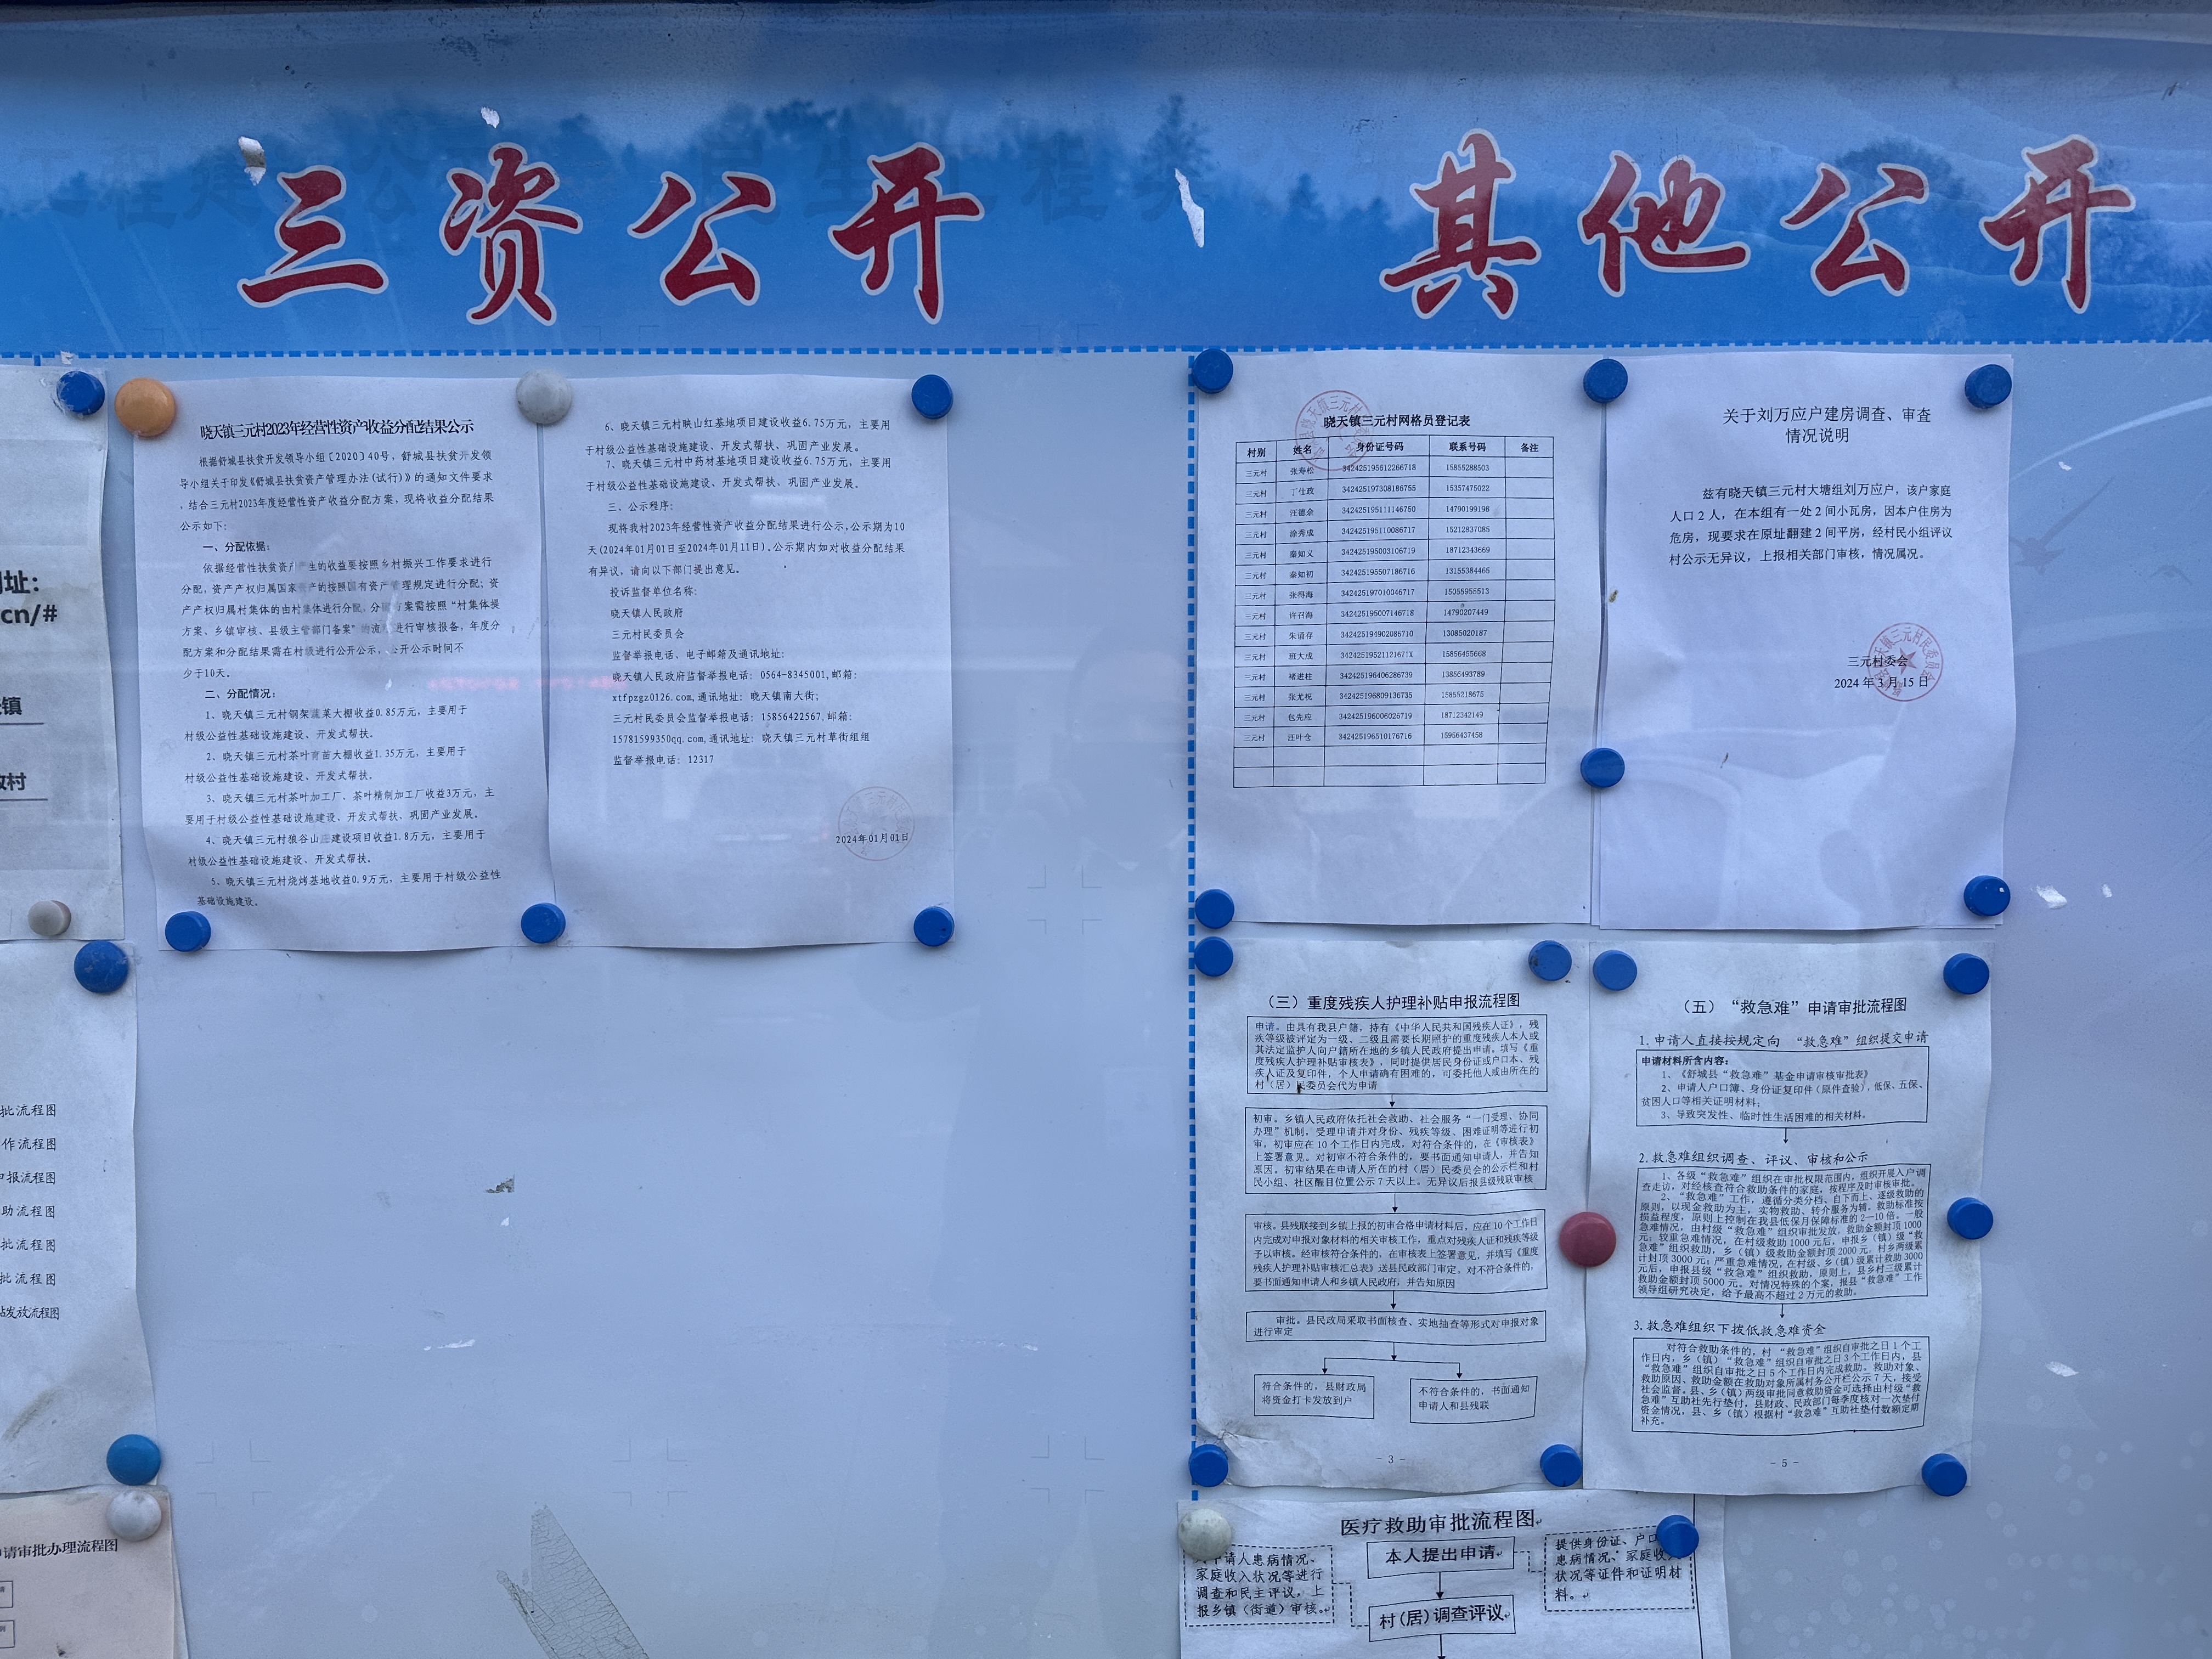 三资公开
其他公开
址：
cn/#
镇
村
批流程图
作流程图
申报流程图
助流程图
批流程图
批流程图
贴发放流程图
请审批办理流程图
晓天镇三元村2023年经营性资产收益分配结果公示
根据舒城县扶贫开发领导小组〔2020〕40号，舒城县扶贫开发领
导小组关于印发《舒城县扶贫资产管理办法(试行)》的通知文件要求
，结合三元村2023年度经营性资产收益分配方案，现将收益分配结果
公示如下：
一、分配依据：
依据经营性扶贫资产产生的收益要按照乡村振兴工作要求进行
分配，资产产权归属国家资产的按照国有资产管理规定进行分配；资
产产权归属村集体的由村集体进行分配，分配方案需按照“村集体提
方案、乡镇审核、县级主管部门备案”的流程进行审核报备，年度分
配方案和分配结果需在村级进行公开公示，公开公示时间不
少于10天。
二、分配情况：
1、晓天镇三元村钢架蔬菜大棚收益0.85万元，主要用于
村级公益性基础设施建设、开发式帮扶。
2、晓天镇三元村茶叶育苗大棚收益1.35万元，主要用于
村级公益性基础设施建设、开发式帮扶。
3、晓天镇三元村茶叶加工厂、茶叶精制加工厂收益3万元，主
要用于村级公益性基础设施建设、开发式帮扶、巩固产业发展。
4、晓天镇三元村狼谷山庄建设项目收益1.8万元，主要用于
村级公益性基础设施建设、开发式帮扶。
5、晓天镇三元村烧烤基地收益0.9万元，主要用于村级公益性
基础设施建设。
6、晓天镇三元村映山红基地项目建设收益6.75万元，主要用
于村级公益性基础设施建设、开发式帮扶、巩固产业发展。
7、晓天镇三元村中药材基地项目建设收益6.75万元，主要用
于村级公益性基础设施建设、开发式帮扶、巩固产业发展。
三、公示程序：
现将我村2023年经营性资产收益分配结果进行公示，公示期为10
天(2024年01月01日至2024年01月11日)。公示期内如对收益分配结果
有异议，请向以下部门提出意见。
投诉监督单位名称：
晓天镇人民政府
三元村民委员会
监督举报电话、电子邮箱及通讯地址：
晓天镇人民政府监督举报电话：0564-8345001,邮箱：
xtfpzgz0126.com,通讯地址：晓天镇南大街；
三元村民委员会监督举报电话：15856422567,邮箱：
1578159935@qq.com,通讯地址：晓天镇三元村草街组组
监督举报电话：12317
2024年01月01日
晓天镇三元村网格员登记表
村别 姓名 身份证号码 联系号码 备注
三元村 张寿松 342425195612266718 15855288503
三元村 丁仕政 342425197308186755 15357475022
三元村 汪德余 342425195111146750 14790199198
三元村 涂秀成 342425195110086717 15212837085
三元村 秦知义 342425195003106719 18712343669
三元村 秦知初 342425195507186716 13155384465
三元村 张得海 342425197010046717 15055955513
三元村 许召海 342425195007146718 14790207449
三元村 朱诵存 342425194902086710 13085020187
三元村 班大成 34242519521121671X 15856455668
三元村 褚进柱 342425196406286739 13856493789
三元村 张光祝 342425196809136735 15855218675
三元村 包先应 342425196006026719 18712342149
三元村 汪叶仓 342425196510176716 15956437458
关于刘万应户建房调查、审查
情况说明
兹有晓天镇三元村大塘组刘万应户，该户家庭
人口2人，在本组有一处2间小瓦房，因本户住房为
危房，现要求在原址翻建2间平房，经村民小组评议
村公示无异议，上报相关部门审核，情况属况。
三元村委会
2024年3月15日
（三）重度残疾人护理补贴申报流程图
申请。由具有我县户籍，持有《中华人民共和国残疾人证》，残
疾等级被评定为一级、二级且需要长期照护的重度残疾人本人或
其法定监护人向户籍所在地的乡镇人民政府提出申请，填写《重
度残疾人护理补贴审核表》，同时提供居民身份证或户口本、残
疾人证及复印件，个人申请确有困难的，可委托他人或由所在的
村（居）民委员会代为申请
初审。乡镇人民政府依托社会救助、社会服务“一门受理、协同
办理”机制，受理申请并对身份、残疾等级、困难证明等进行初
审，初审应在10个工作日内完成，对符合条件的，在《审核表》
上签署意见。对初审不符合条件的，要书面通知申请人，并告知
原因。初审结果在申请人所在的村（居）民委员会的公示栏和村
民小组、社区醒目位置公示7天以上。无异议后报县级残联审核
审核。县残联接到乡镇上报的初审合格申请材料后，应在10个工作日
内完成对申报对象材料的相关审核工作，重点对残疾人证和残疾等级
予以审核。经审核符合条件的，在审核表上签署意见，并填写《重度
残疾人护理补贴审核汇总表》送县民政部门审定。对不符合条件的，
要书面通知申请人和乡镇人民政府，并告知原因
审批。县民政局采取书面核查、实地抽查等形式对申报对象
进行审定
符合条件的，县财政局
将资金打卡发放到户
不符合条件的，书面通知
申请人和县残联
- 3 -
（五）“救急难”申请审批流程图
1.申请人直接按规定向 “救急难”组织提交申请
申请材料所含内容：
1、《舒城县“救急难”基金申请审核审批表》
2、申请人户口簿、身份证复印件（原件查验），低保、五保、
贫困人口等相关证明材料；
3、导致突发性、临时性生活困难的相关材料。
2.救急难组织调查、评议、审核和公示
1、各级“救急难”组织在审批权限范围内，组织开展入户调
查走访，对经核查符合救助条件的家庭，按程序及时审核审批。
2、“救急难”工作，遵循分类分档、自下而上、逐级救助的
原则，以现金救助为主，实物救助、转介服务为辅，救助标准按
损益程度，原则上控制在我县低保月保障标准的2—10倍。一般
急难情况，由村级“救急难”组织审批发放，救助金额封顶1000
元；较重急难情况，在村级救助1000元后，申报乡（镇）级“救
急难”组织救助，乡（镇）级救助金额封顶2000元，村乡两级累
计封顶3000元；严重急难情况，在村级、乡（镇）级累计救助3000
元后，申报县级“救急难”组织救助，原则上，县乡村三级累计
救助金额封顶5000元。对情况特殊的个案，报县“救急难”工作
领导组研究决定，给予最高不超过2万元的救助。
3.救急难组织下拨低救急难资金
对符合救助条件的，村 “救急难”组织自审批之日1个工
作日内，乡（镇）“救急难”组织自审批之日3个工作日内，县
“救急难”组织自审批之日5个工作日内完成救助。救助对象、
救助原因、救助金额在救助对象所属村务公开栏公示7天，接受
社会监督。县、乡（镇）两级审批同意救助资金可选择由村级“救
急难”互助社先行垫付，县财政、民政部门每季度核对一次垫付
资金情况，县、乡（镇）根据村“救急难”互助社垫付数额定期
补充。
- 5 -
医疗救助审批流程图
申请人患病情况、
家庭收入状况等进行
调查和民主评议，上
报乡镇（街道）审核。
本人提出申请
村(居)调查评议
提供身份证、户口
患病情况、家庭收入
状况等证件和证明材
料。